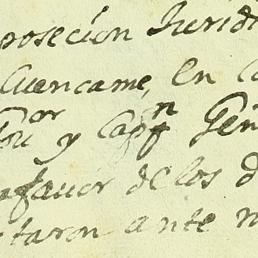 posecion Juridi
Cuencame, en C
Gov.or y Cap.n Gen
afavor de los d
taron ante m